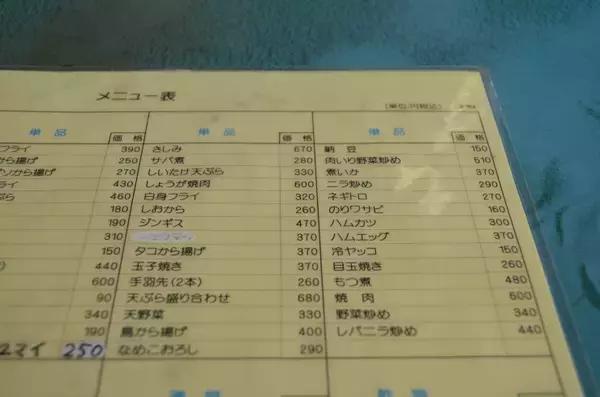 メニュー表
(単位:円税込)
単品 価格 単品 価格 単品 価格
フライ 390 さしみ 670 納豆 150
から揚げ 250 サバ煮 280 肉いり野菜炒め 510
ソから揚げ 270 しいたけ天ぷら 330 煮いか 370
イ 430 しょうが焼肉 600 ニラ炒め 290
ぷら 460 白身フライ 320 ネギトロ 270
180 しおから 260 のりワサビ 160
190 ジンギス 470 ハムカツ 300
310 370 ハムエッグ 370
150 タコから揚げ 370 冷ヤッコ 150
440 玉子焼き 370 目玉焼き 260
600 手羽先(2本) 260 もつ煮 480
90 天ぷら盛り合わせ 680 焼肉 600
340 天野菜 330 野菜炒め 340
190 鳥から揚げ 400 レバニラ炒め 440
マイ 250 なめこおろし 290